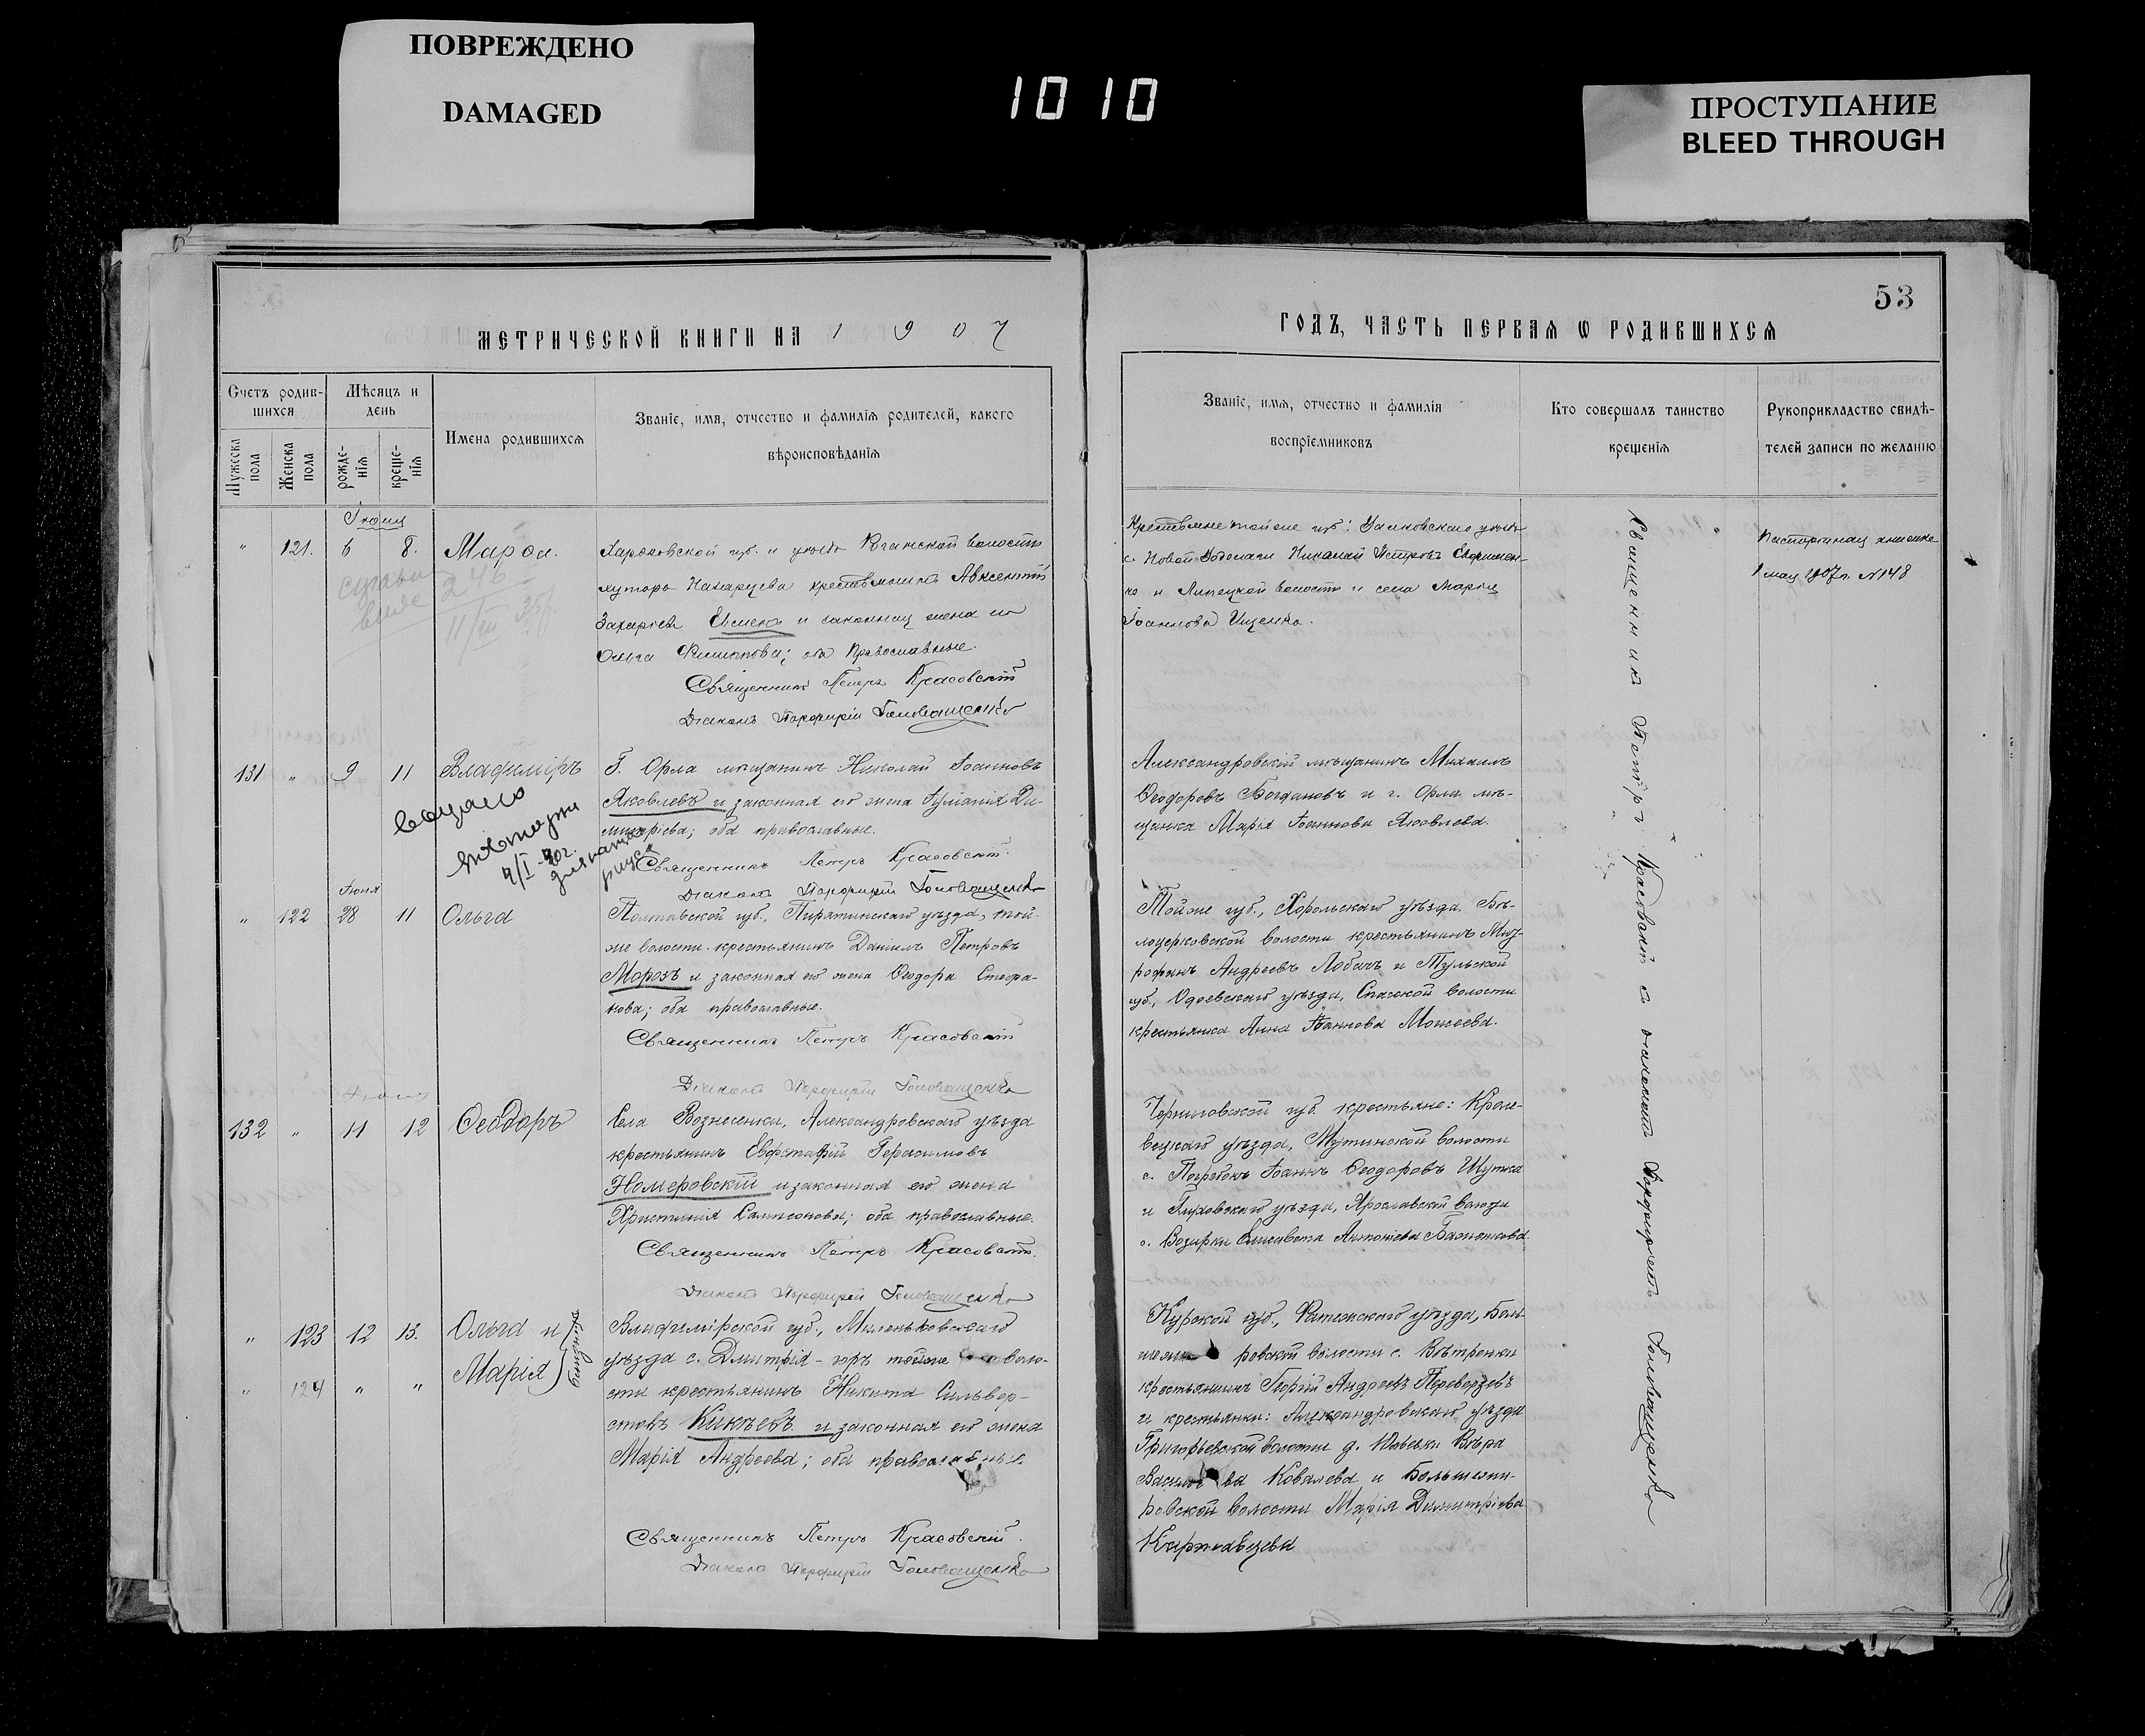 ПОВРЕЖДЕНО
DAMAGED
1010
ПРОСТУПАНИЕ
BLEED THROUGH
53
МЕТРИЧЕСКОЙ КНИГИ НА 1907
ГОДЪ, ЧАСТЬ ПЕРВАЯ Ѡ РОДИВШИХСЯ
Счетъ родив-
шихся
Мужеска пола
Женска пола
Мѣсяцъ и
день
рожде-
нія
креще-
нія
Имена родившихся
Званіе, имя, отчество и фамилія родителей, какого
вѣроисповѣданія
Званіе, имя, отчество и фамилія
воспріемниковъ
Кто совершалъ таинство
крещенія
Рукоприкладство свидѣ-
телей записи по желанію
" 121. 6 8.
Харьковской губ. и уѣзда волости
хутора крестьянинъ Авксентій
Захаріевъ и законная жена его
Ольга Филиппова; оба Православные.
Священникъ Петръ Красовскій
Діаконъ Порфирій Головащенко
Крестьяне той же губ.: уѣзда
с. Новой Николай Петровъ
но и Липецкой волости и села Марія
Іоаннова Ищенко.
1907 г. №148
131 " 9 11 Владиміръ
4/I
Г. Орла мѣщанинъ Николай Іоанновъ
Яковлевъ и законная его жена Іуліанія Ди-
митріева; оба православные.
Священникъ Петръ Красовскій.
Діаконъ Порфирій Головащенко
Александровскій мѣщанинъ Михаилъ
Ѳеодоровъ Богдановъ и г. Орла мѣ-
щанка Марія Іоаннова Яковлева.
" 122 28 11 Ольга
Полтавской губ., Пирятинскаго уѣзда, той-
же волости крестьянинъ Даніилъ Петровъ
Морозъ и законная его жена Ѳеодора Стефа-
нова; оба православные.
Священникъ Петръ Красовскій
Діаконъ Порфирій Головащенко
Той же губ., Хорольскаго уѣзда, Бѣ-
лоцерковской волости крестьянинъ Мит-
рофанъ Андреевъ Лобачъ и Тульской
губ., Одоевскаго уѣзда, Спасской волости
крестьянка Анна Іоаннова Моисеева.
132 " 11 12 Ѳеодоръ
Села Вознесенки, Александровскаго уѣзда
крестьянинъ Евфстафій Герасимовъ
Номеровскій и законная его жена
Христинія Сампсонова; оба православные.
Священникъ Петръ Красовскій.
Діаконъ Порфирій Головащенко
Черниговской губ. крестьяне: Кроле-
вецкаго уѣзда, Мутинской волости
с. Погребокъ Іоаннъ Ѳеодоровъ Шутка
и Глуховскаго уѣзда, Ярославской волости
Елисавета Антоніева
" 123 12 13. Ольга и
" 124 " " Марія
Владимірской губ., Меленьковскаго
уѣзда с. Димитрія-горъ тойже воло-
сти крестьянинъ Никита Сильвер-
стовъ и законная его жена
Марія Андреева; оба православные.
Священникъ Петръ Красовскій.
Діаконъ Порфирій Головащенко
Курской губ., Фатежскаго уѣзда, Боль-
ровской волости с. Вѣтренки
крестьянинъ Георгій Андреевъ Переверзевъ
и крестьянки: Александровскаго уѣзда
Григорьевской волости д. Вѣра
Ковалева и
ровской волости Марія Димитріева
Священникъ Петръ Красовскій съ діакономъ Порфиріемъ Головащенко